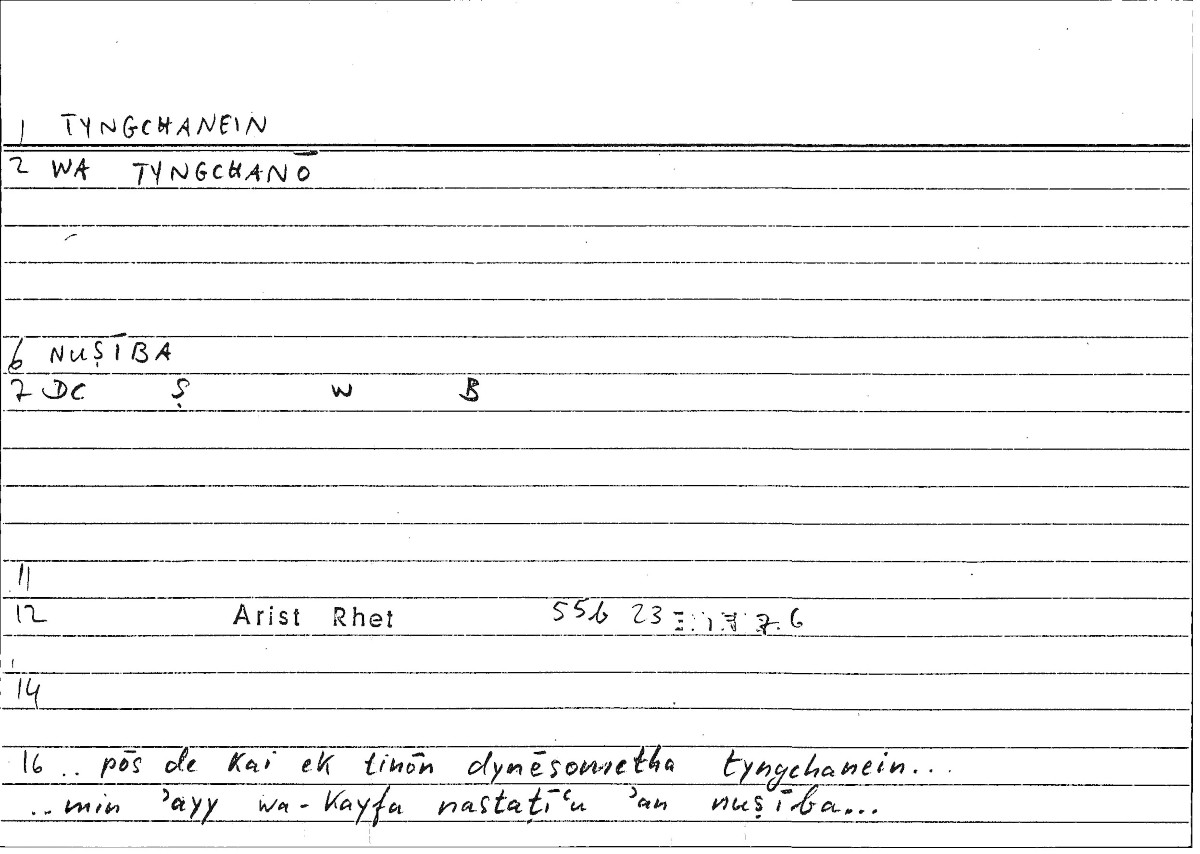 1 TYNGCHANEIN
2 WA TYNGCHANŌ
6 NUṢĪBA
7 DC Ṣ W B
11
12 Arist Rhet 55b 23 7.6
14
16 .. pōs de kai ek tinōn dynēsometha tyngchanein...
..min ʾayy wa-kayfa nastaṭīʿu ʾan nuṣība...